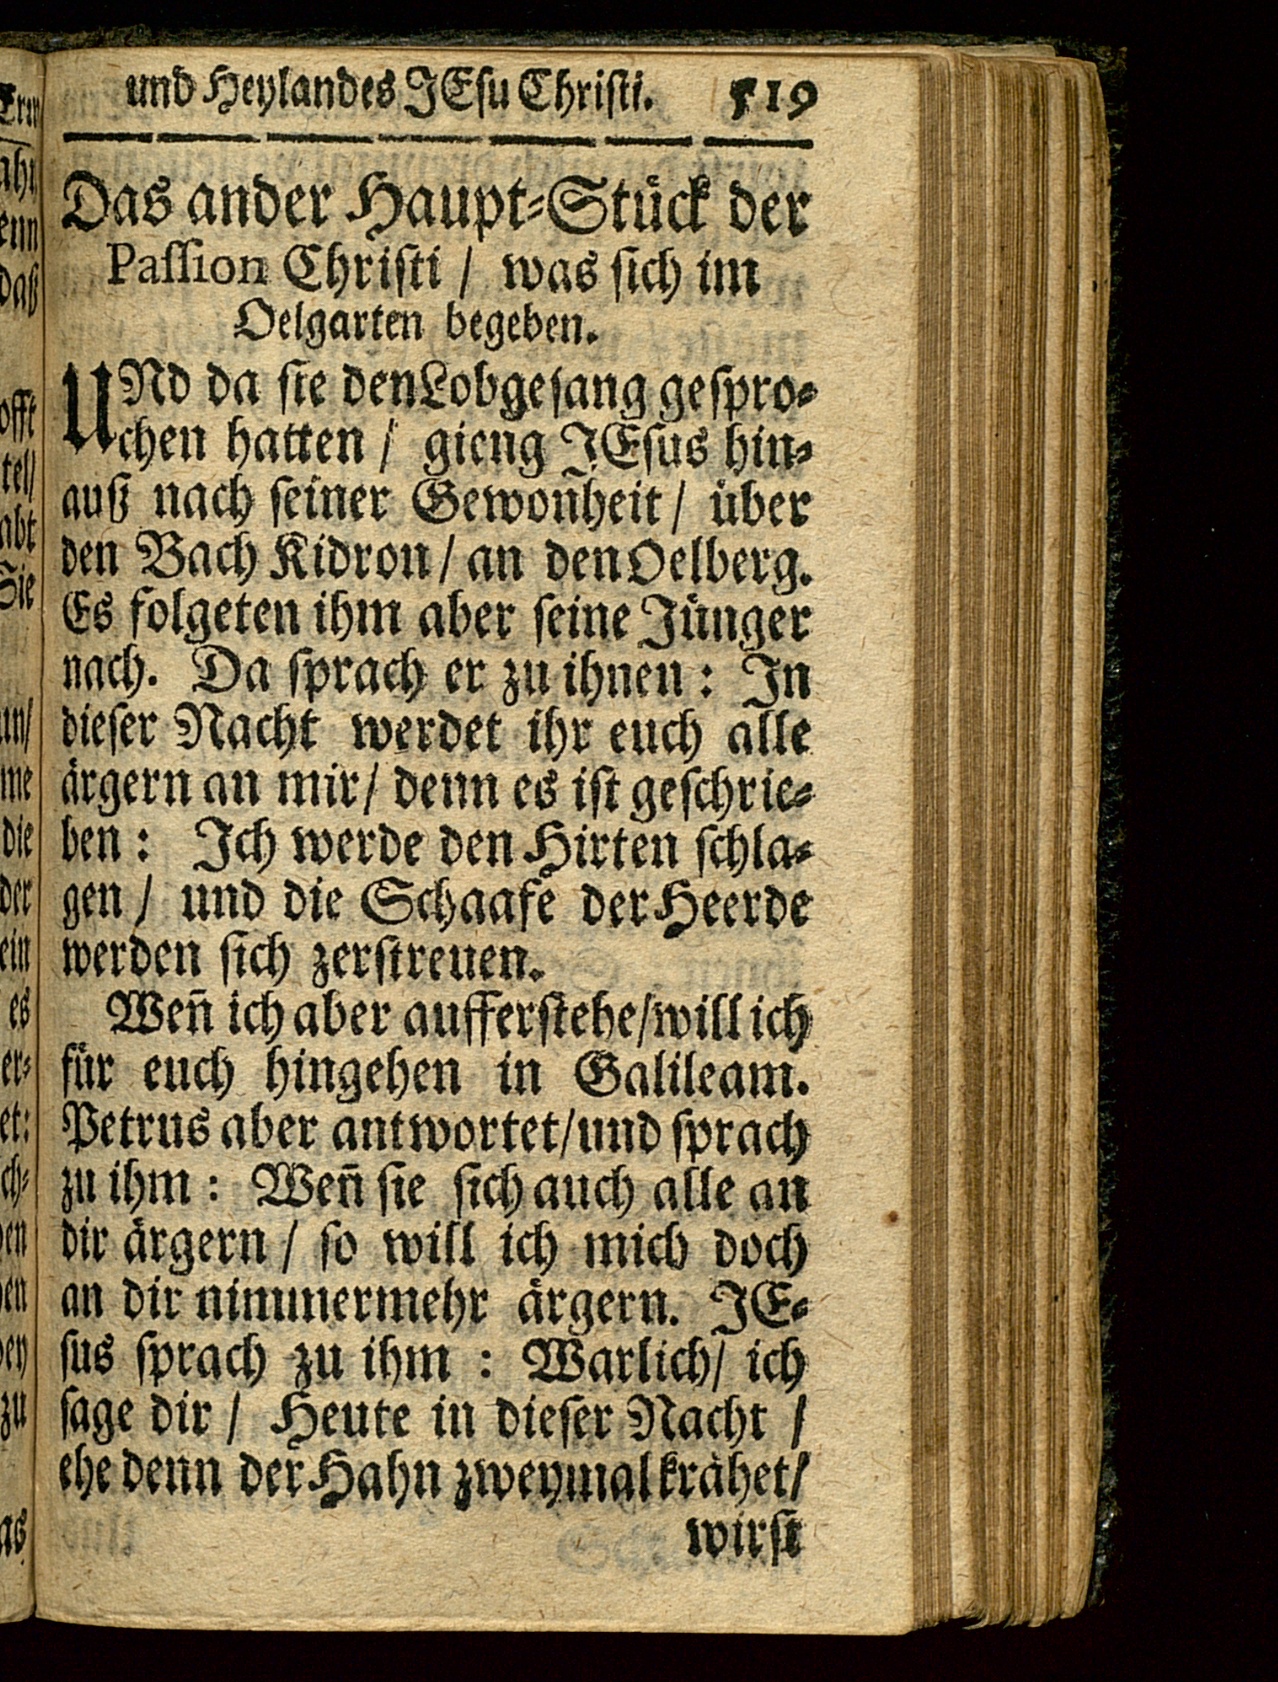 und Heylandes JEsu Christi. 519
Das ander Haupt-Stück der
Passion Christi / was sich im
Oelgarten begeben.
UNd da sie den Lobgesang gespro-
chen hatten / gieng JEsus hin-
auß nach seiner Gewonheit / über
den Bach Kidron / an den Oelberg.
Es folgeten ihm aber seine Jünger
nach. Da sprach er zu ihnen: In
dieser Nacht werdet ihr euch alle
ärgern an mir / denn es ist geschrie-
ben: Ich werde den Hirten schla-
gen / und die Schaafe der Heerde
werden sich zerstreuen.
Weñ ich aber aufferstehe / will ich
für euch hingehen in Galileam.
Petrus aber antwortet / und sprach
zu ihm: Weñ sie sich auch alle an
dir ärgern / so will ich mich doch
an dir nimmermehr ärgern. JE-
sus sprach zu ihm: Warlich / ich
sage dir / Heute in dieser Nacht /
ehe denn der Hahn zweymal krähet /
wirst